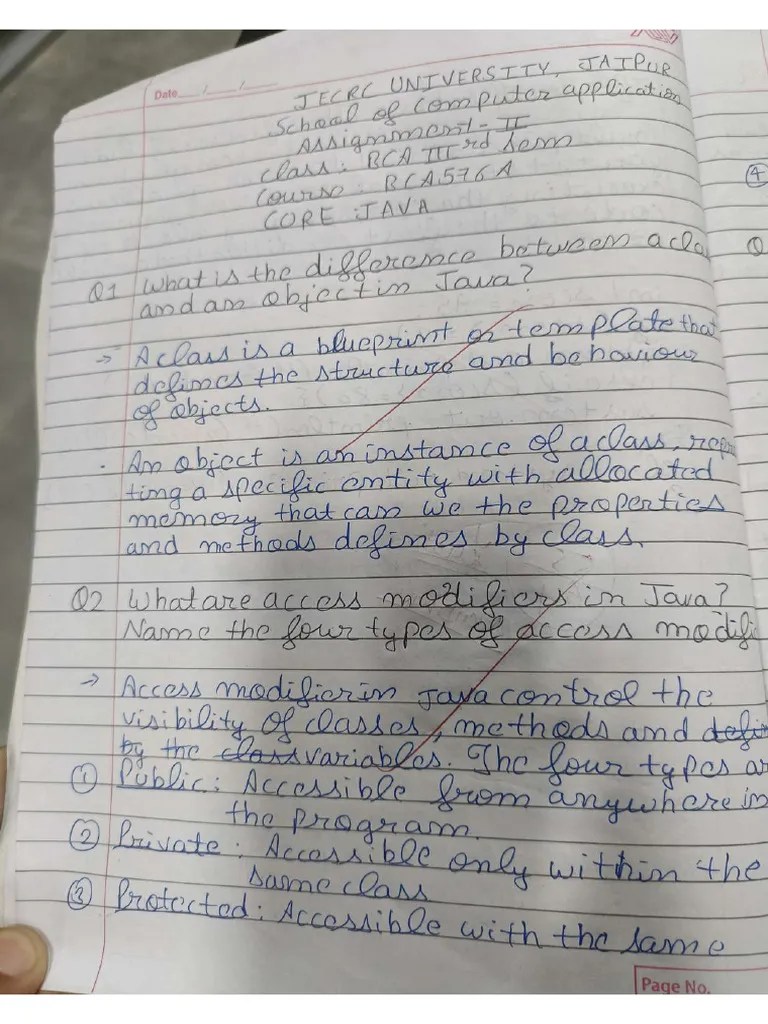 Date
JECRC UNIVERSITY, JAIPUR
School of computer application
Assignment-II
class: BCA IIIrd sem
Course: BCA576A
CORE JAVA
Q1 What is the difference between a cla
and an object in Java?
→ A class is a blueprint or template that
defines the structure and behaviour
of objects.
. An object is an instance of a class, repr
ting a specific entity with allocated
memory that can we the properties
and methods defines by class.
Q2 What are access modifiers in Java?
Name the four types of access modifi
→ Access modifier in Java control the
visibility of classes, methods and defin
by the class variables. The four types ar
① Public: Accessible from anywhere in
the program.
② Private: Accessible only within the
same class
③ Protected: Accessible with the same
Page No.
④
Q